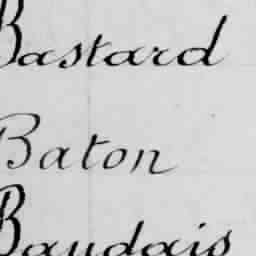 Bastard
Baton
Baudais